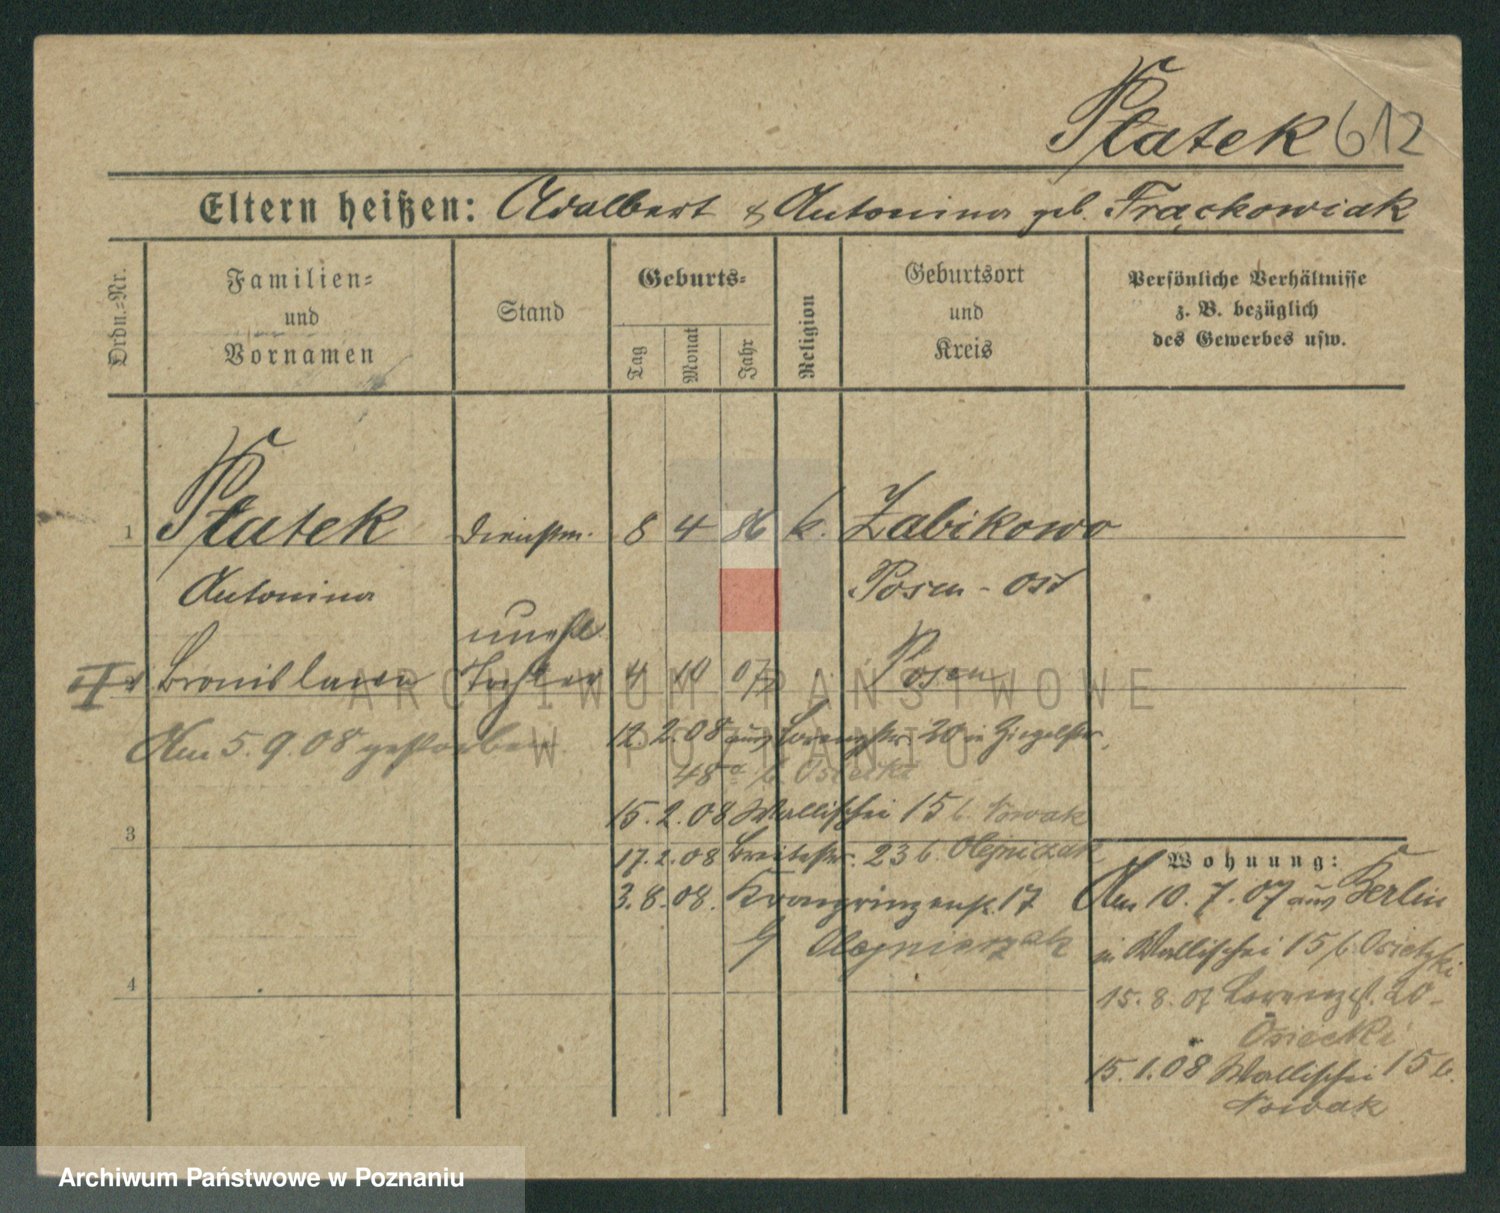 Płatek 612
Eltern heißen: Adalbert & Antonina geb. Frąckowiak
Ordn.-Nr.
Familien-
und
Vornamen
Stand
Geburts-
Tag
Monat
Jahr
Religion
Geburtsort
und
Kreis
Persönliche Verhältnisse
z. B. bezüglich
des Gewerbes usw.
1 Płatek Dienstm. 8 4 86 k. Żabikowo
Antonina Posen-Ost
unehl
Bronislawa Tochter 4 10 07 Posen
Am 5.9.08 gestorben.
12.2.08 aus Lorenzstr. 20 in Ziegelstr.
48a b. Osiecki
15.2.08 Wallischei 15 b. Nowak
3
17.2.08 Breitestr. 23 b. Olejniczak
3.8.08. Kronprinzenst. 17
Olejniczak
4
Wohnung:
Am 10.7.07 aus Berlin
in Wallischei 15 b. Osietzki
15.8.07 Lorenzst. 20-
Osiecki
15.1.08 Wallischei 15 b.
Nowak
ARCHIWUM PAŃSTWOWE
W POZNANIU
Archiwum Państwowe w Poznaniu